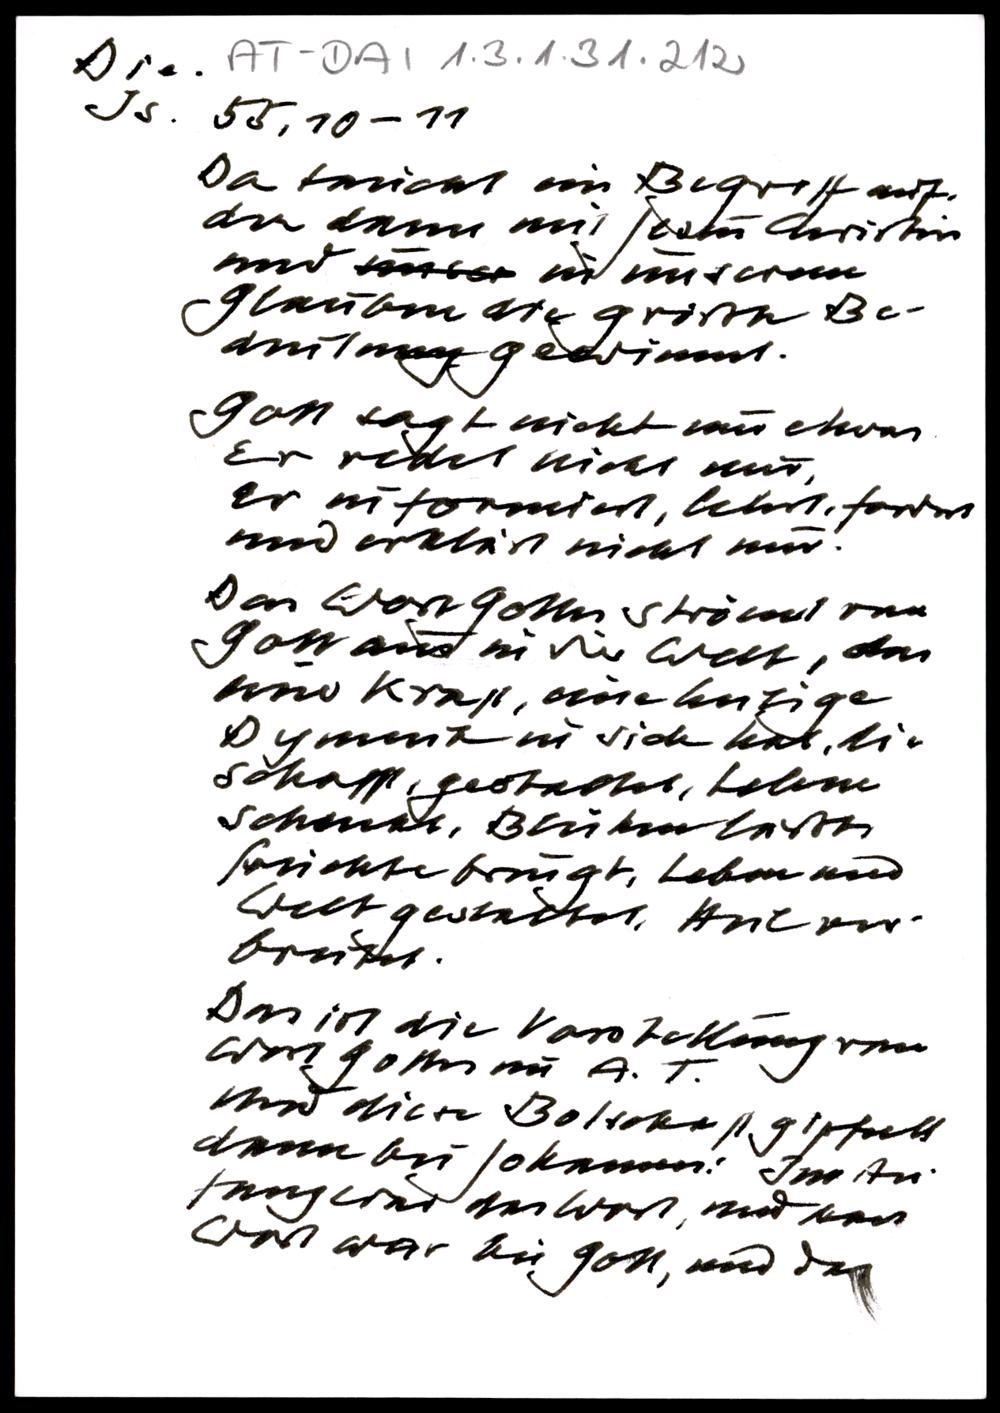 Die. AT-DAI 1.3.1.31.212
Js. 55,10-11
Da taucht ein Begriff auf,
der dann mit Jesus Christus
und unser in unserem
Glauben die grösste Be-
deutung gewinnt.
Gott sagt nicht nur etwas
Er redet nicht nur,
Er informiert, lehrt, fordert
und erklärt nicht nur.
Das Wort Gottes strömt von
Gott aus in die Welt, das
eine Kraft, eine
in sich hat, die
schafft, gestaltet, Leben
schenkt, Blühen lässt
Früchte bringt, Leben und
Welt gestaltet, Heil ver-
breitet.
Das ist die Vorstellung vom
Wort Gottes im A. T.
Und diese Botschaft gipfelt
dann bei Johannes: Im An-
fang war das Wort, und das
Wort war bei Gott, und das